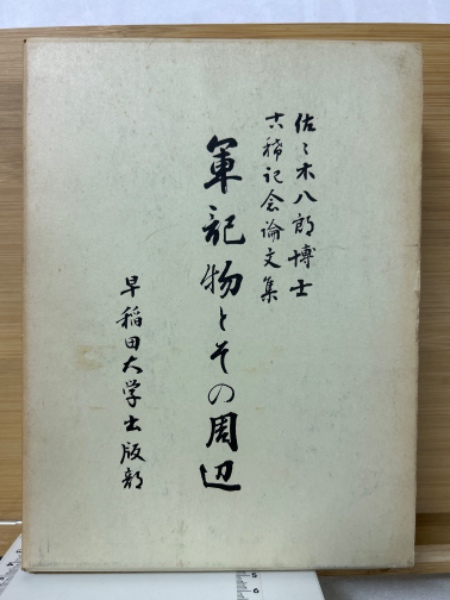 佐々木八郎博士
古稀記念論文集
軍記物とその周辺
早稲田大学出版部